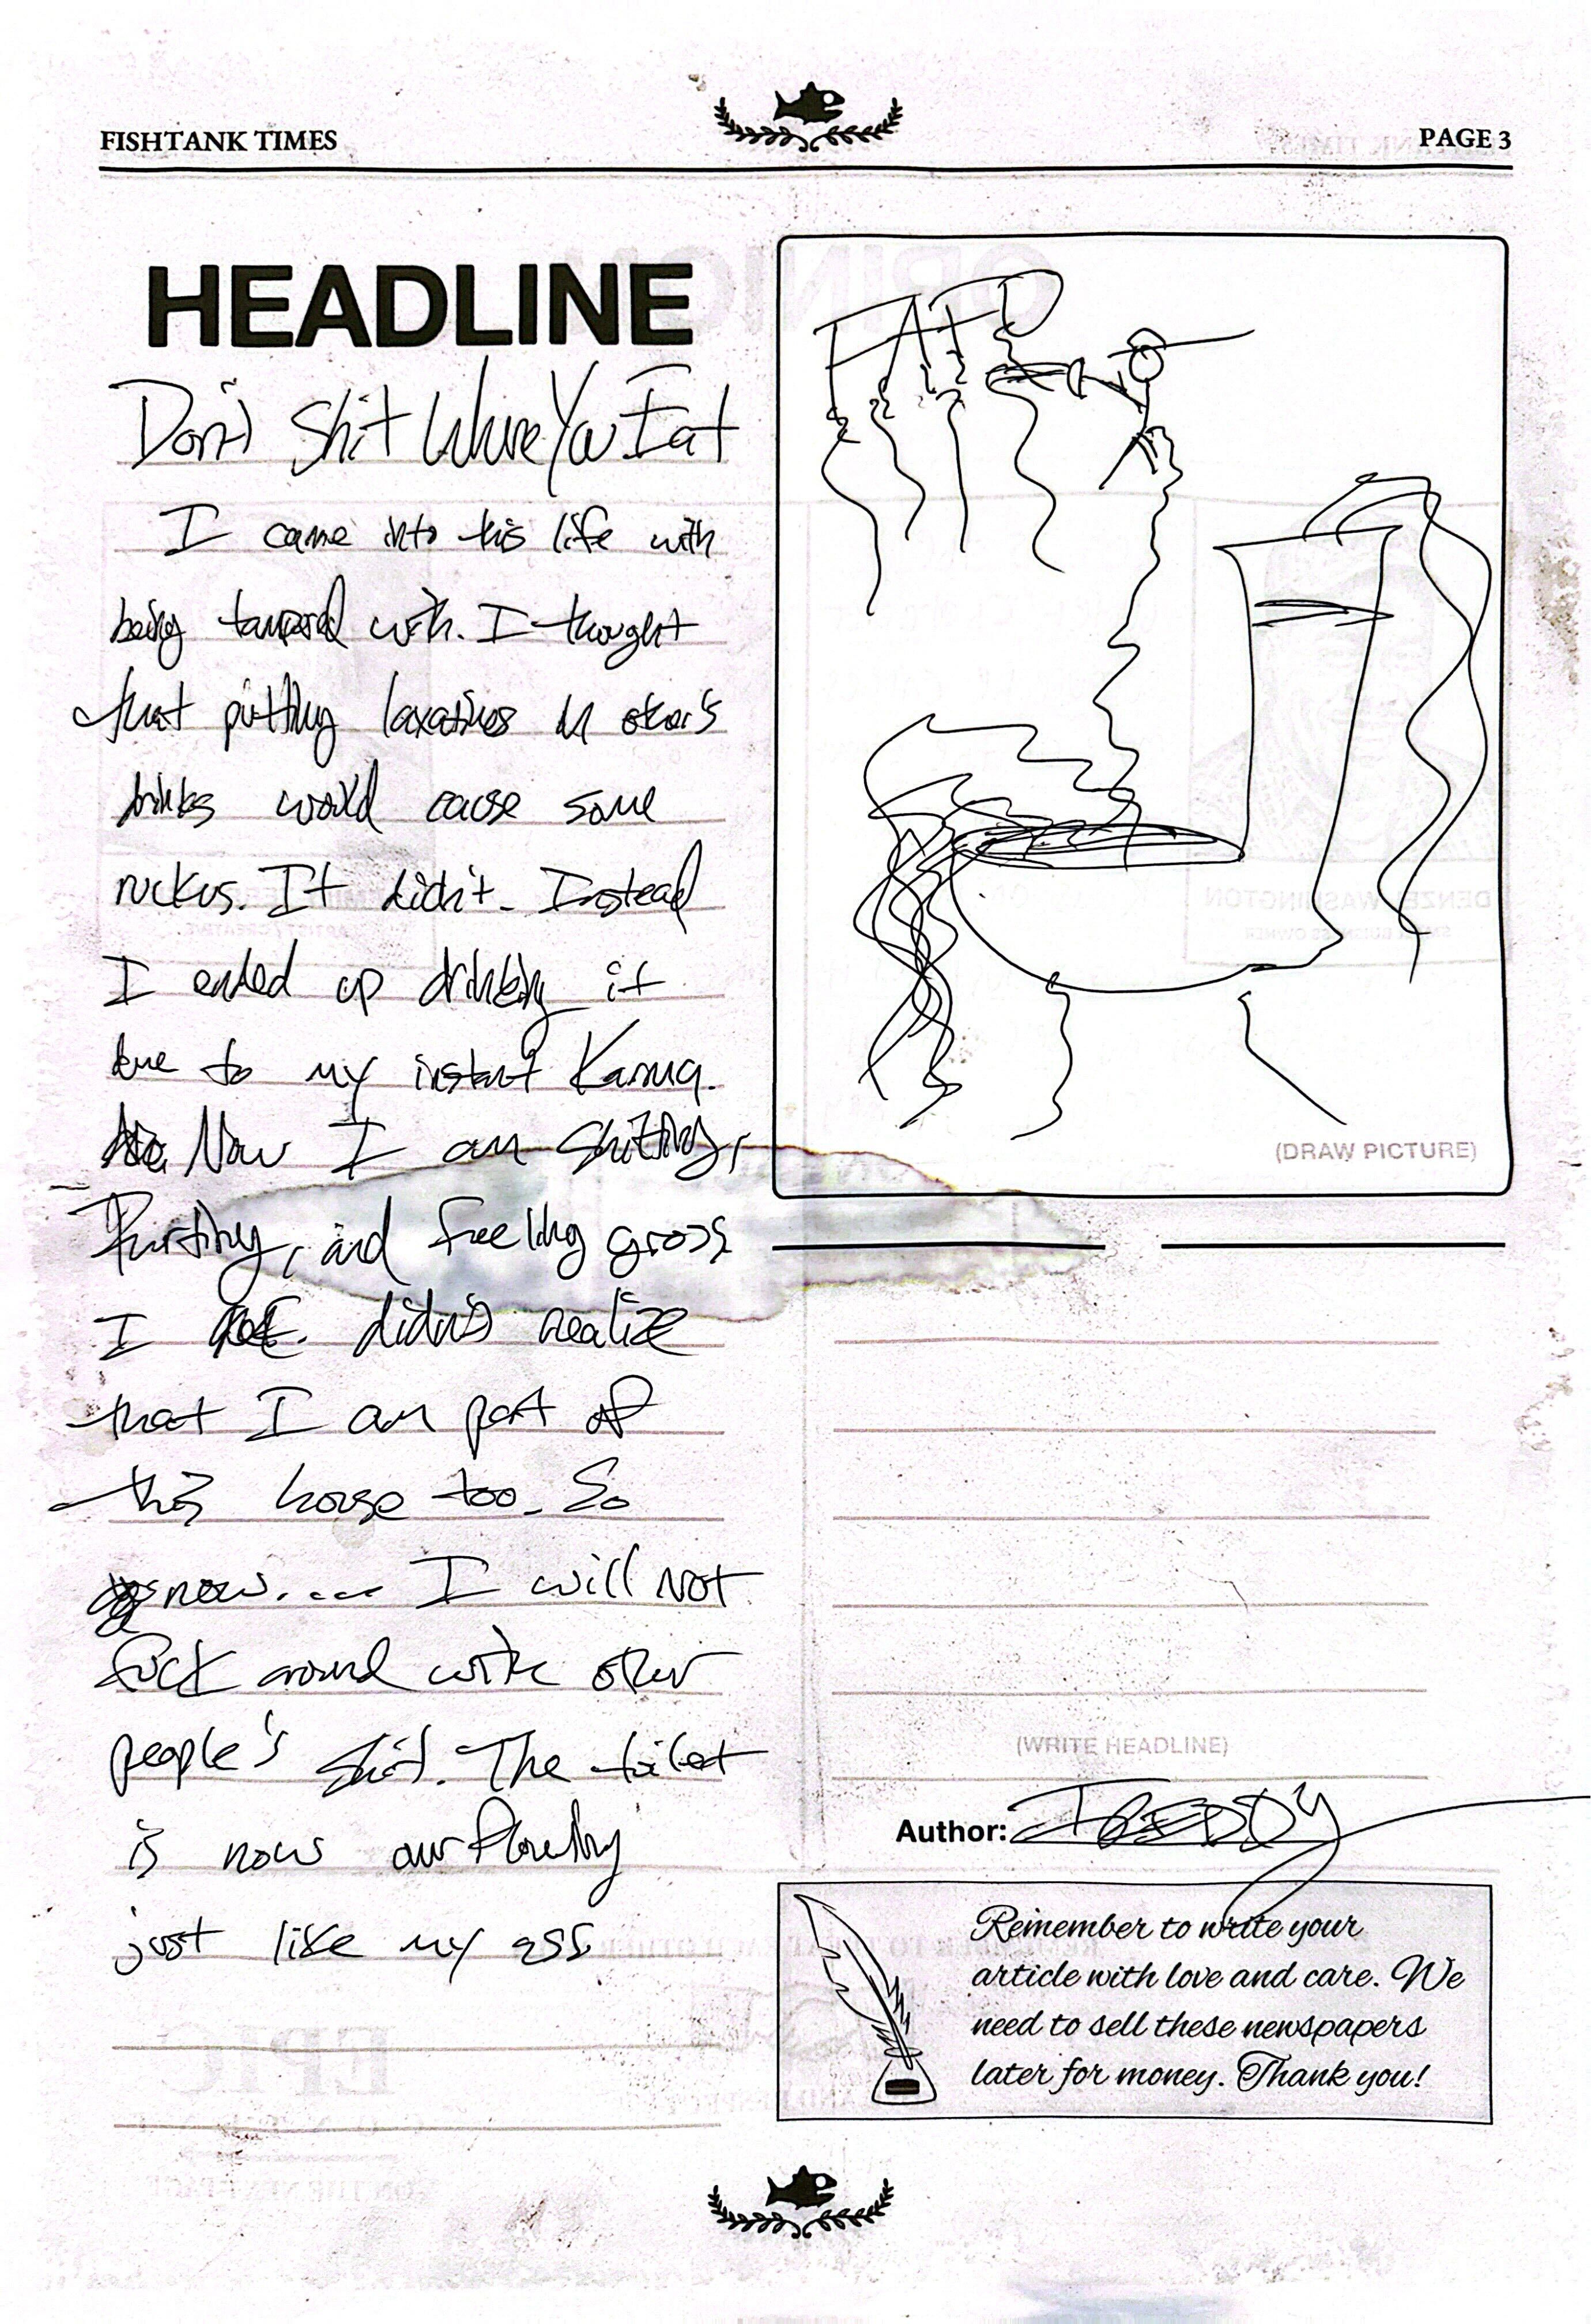 FISHTANK TIMES
PAGE 3
HEADLINE
Don't Shit Where You Eat
I came into this life with
being tampered with. I thought
that putting laxatives in other's
drinks would cause some
ruckus. It didn't. Instead
I ended up drinking it
due to my instant Karma.
Now I am shitting,
Farting, and feeling gross
I didn't realize
that I am part of
this house too. So
now.... I will not
fuck around with other
people's shit. The toilet
is now
just like my ass
FATD
(DRAW PICTURE)
(WRITE HEADLINE)
Author:
Remember to write your
article with love and care. We
need to sell these newspapers
later for money. Thank you!